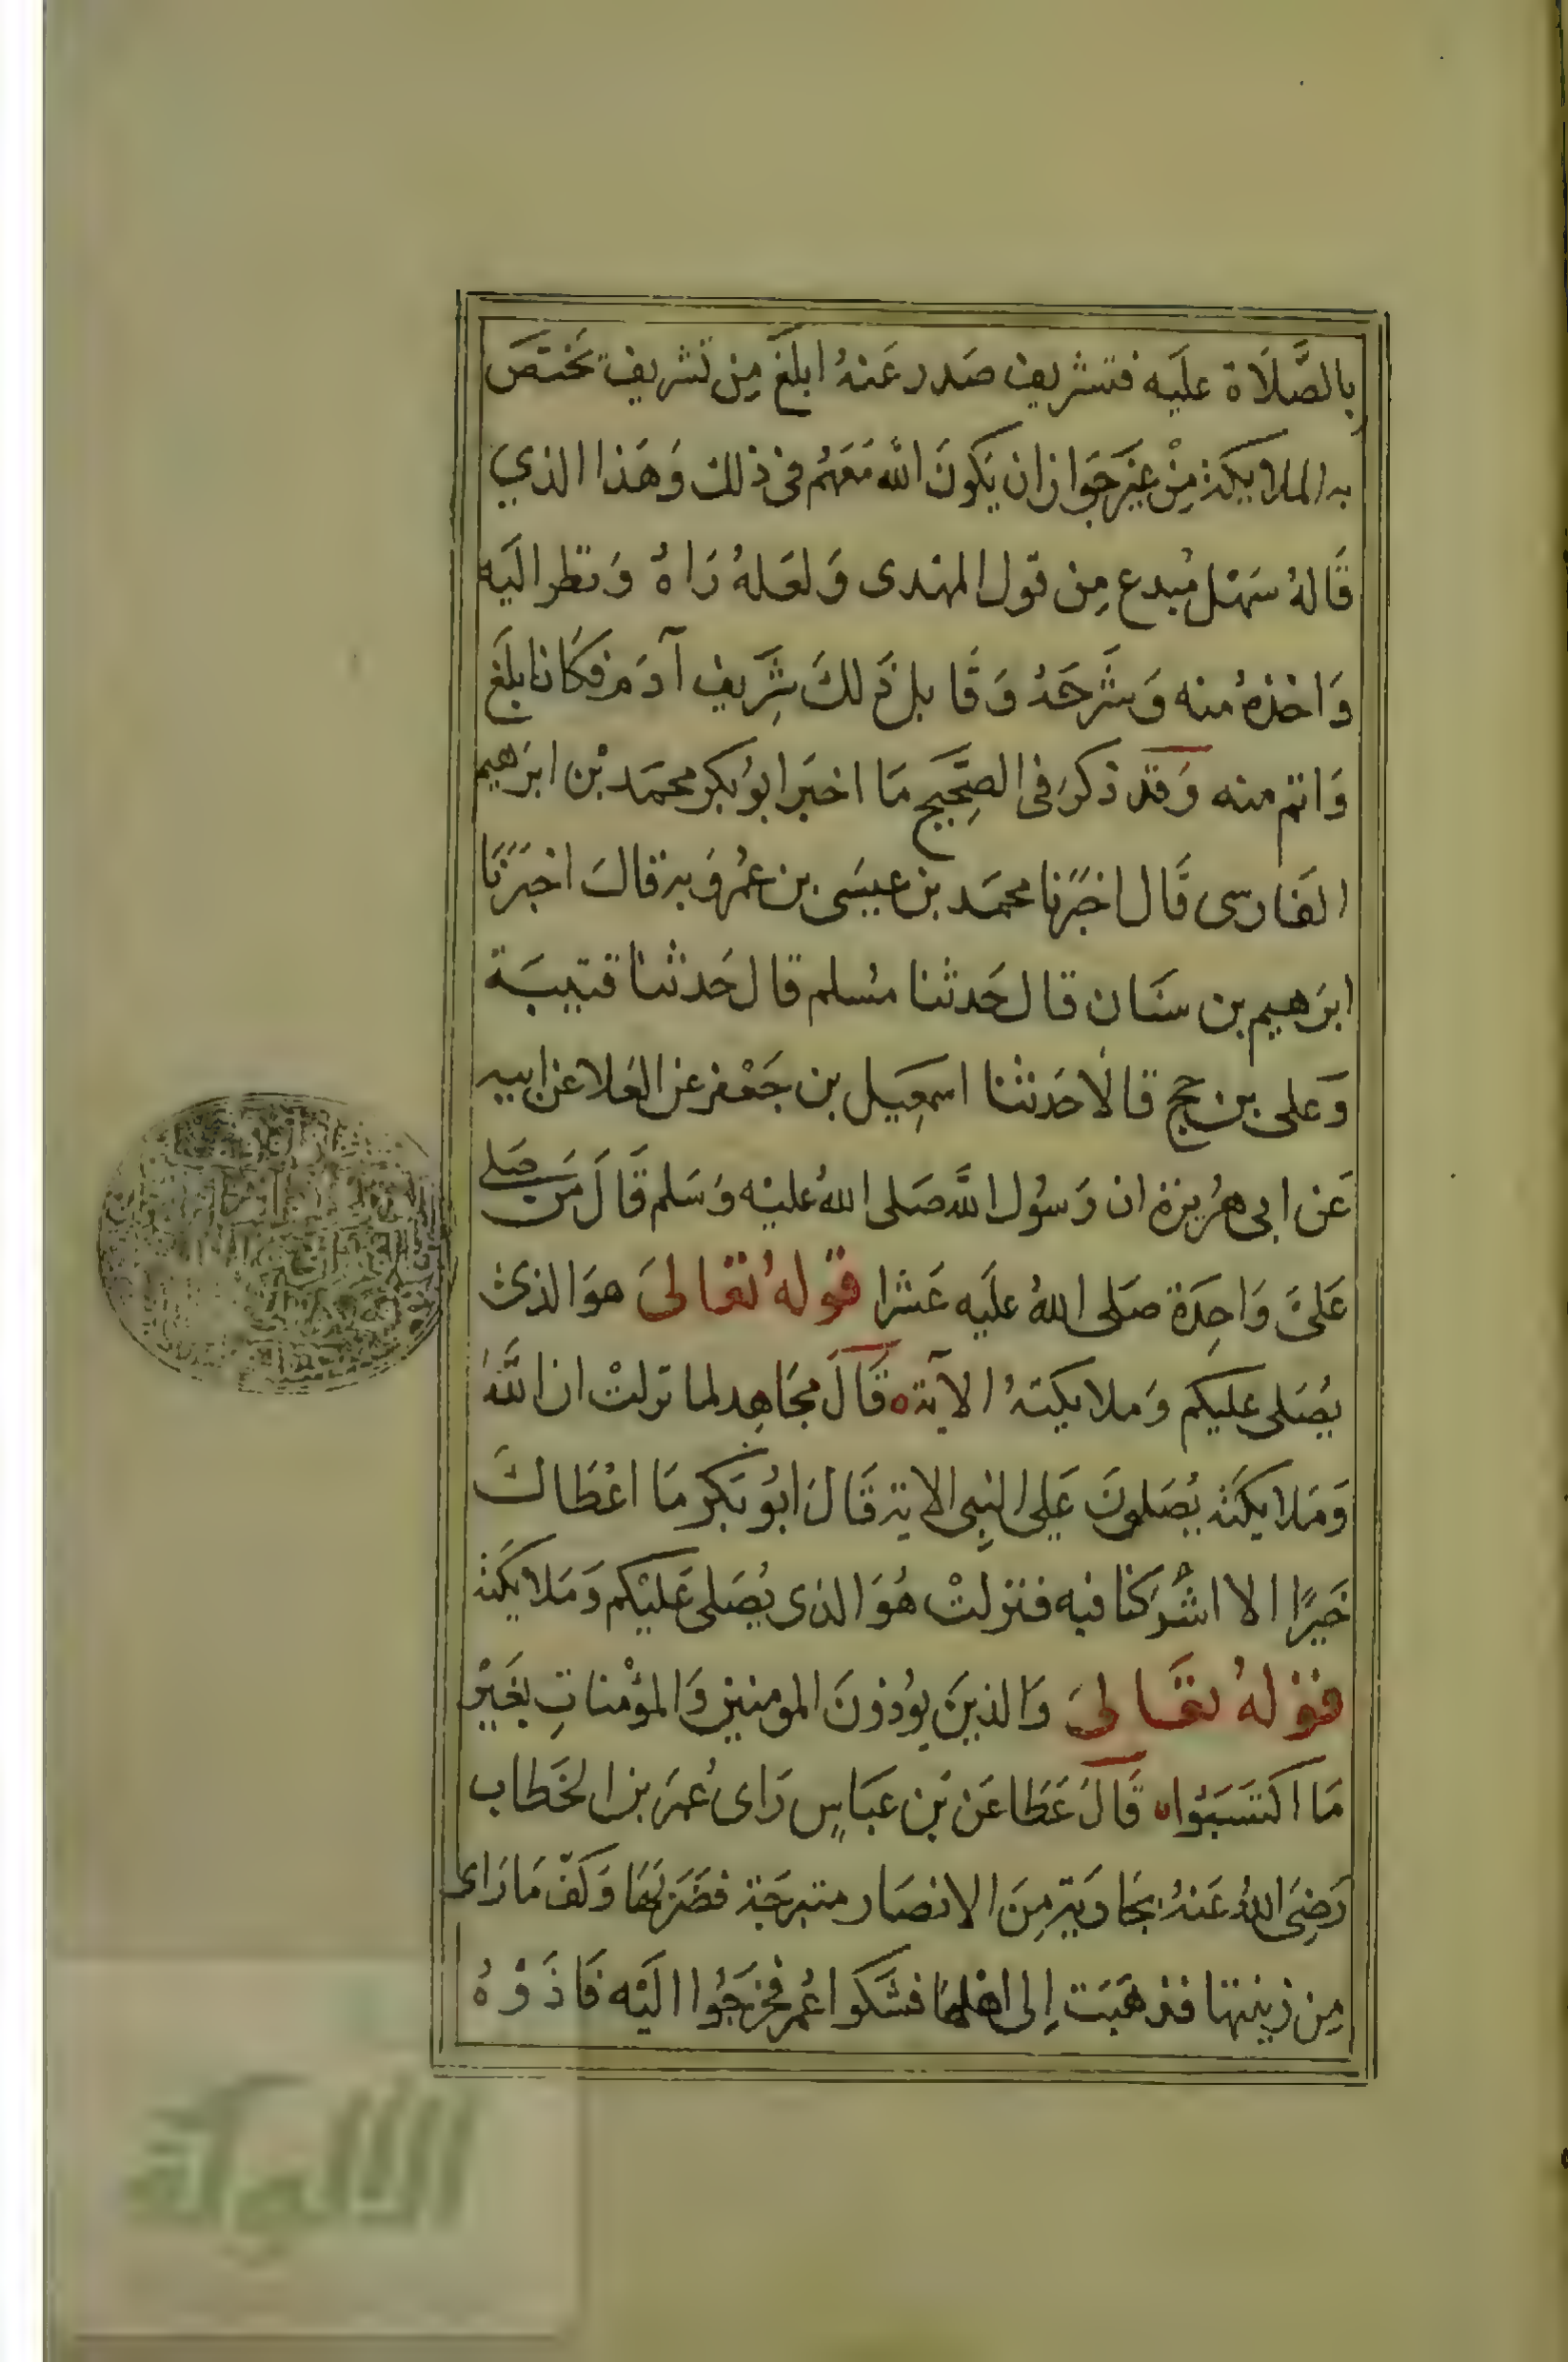 بالصَّلَاة علَيه فتشريف صَدر عَنهُ ابلَغَ مِن تَشريف تَختَصّ
به الملايكة مِنْ غَيرَ جَوَاز ان يَكونَ اللّه مَعَهُم في ذلك وَهَذا الذي
قَالهُ سَهْل مُبدع مِن قول المهدى وَلعَلهُ رَاهُ وَنظر اليَه
وَاخذهُ منه وَشَرحَهُ وَقَابل ذَلكَ شِرَيف آدَم فكَان ابلَغ
وَاتم منه وَقد ذكَر فى الصَّحِيح مَا اخبَر ابوُ بكر محمَد بْن ابرَهيم
الفَارسى قَال اخبَرنا محمَد بن عيسَى بن عَمُروَيه قالَ اخبَرَنَا
ابرَهيم بن سنَان قال حَدثنا مُسلم قال حَدثنا قتيبَة
وَعلى بن حج قالَا حَدثنا اسمعِيل بن جَعْفر عَن العَلا عَن ابيه
عَن ابى هُرَيرَة ان رَسوُل اللَّه صَلى اللهُ عليْه وَسَلم قَالَ مَن صَلى
عَليَّ وَاحِدَة صَلى اللهُ عليَه عَشْرا قولهُ تعَالىَ هوَ الذىْ
يُصَلى عليكم وَملايكتهُ الآية ه قَالَ مجَاهِد لما نزلتْ ان اللَّهَ
وَمَلايكتَه يُصَلونَ عَلى النبِى الاية قَالَ ابوُ بَكر مَا اعْطَاكَ
خَيرًا الا اشْرَكنا فيه فنزلتْ هُوَ الذى يُصَلى عَليْكم وَمَلايكَته
قولهُ تعَالىَ وَالذيِنَ يوُذونَ المومنيِن وَالمؤْمناتِ بغَيْرِ
مَا اكتسَبَوُا ه قَالَ عَطَا عَن بَن عبَاسٍ رَاى عُمَر بن الخَطاب
رَضِىَ اللهُ عَنهُ بجَاريَة مِنَ الانصَار متبرجَة فضَرَبهَا وَكَفّ مَا رَاى
مِن زينتها فذهَبَت اِلى اهْلهَا فشَكوا عُمر فخرَجوُا اليَه فَاذَوْهُ
الألوكة